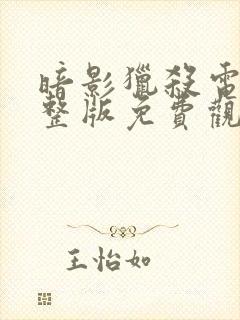 暗影獵殺電
整版免費觀
王怡如